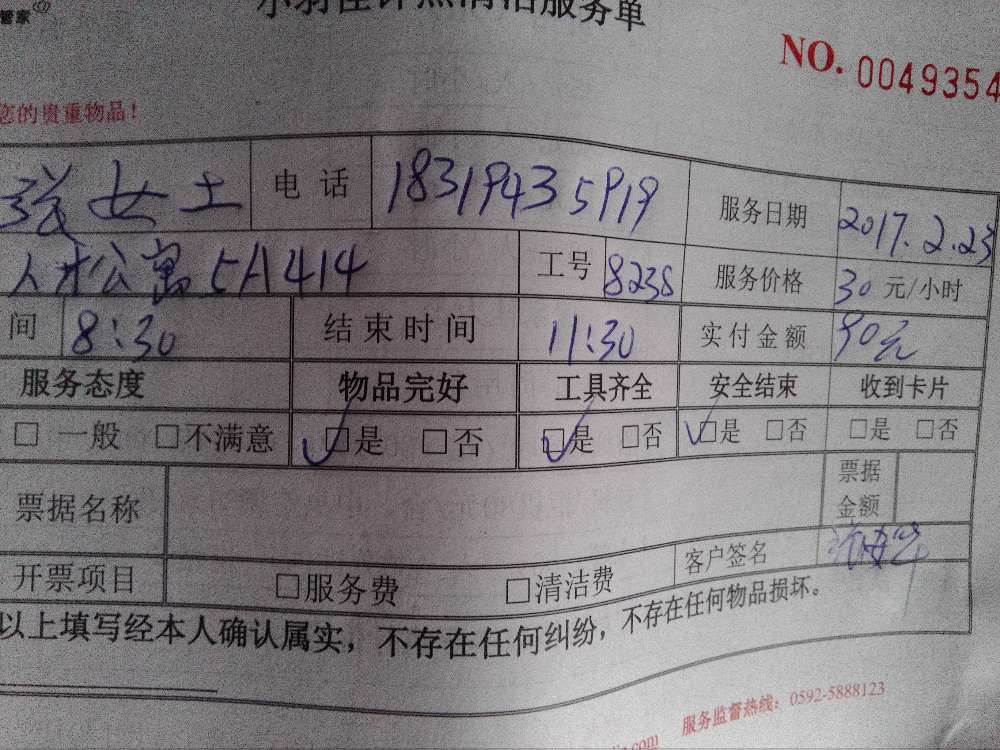 管家
服务单
NO. 0049354
您的贵重物品！
张女士 电话 18319435919 服务日期 2017.2.23
人才公寓5A414 工号 8238 服务价格 30 元/小时
间 8:30 结束时间 11:30 实付金额 90元
服务态度 物品完好 工具齐全 安全结束 收到卡片
□ 一般 □不满意 ☑是 □否 ☑是 □否 ☑是 □否 □是 □否
票据名称 票据金额
开票项目 □服务费 □清洁费 客户签名
以上填写经本人确认属实，不存在任何纠纷，不存在任何物品损坏。
服务监督热线：0592-5888123
.com